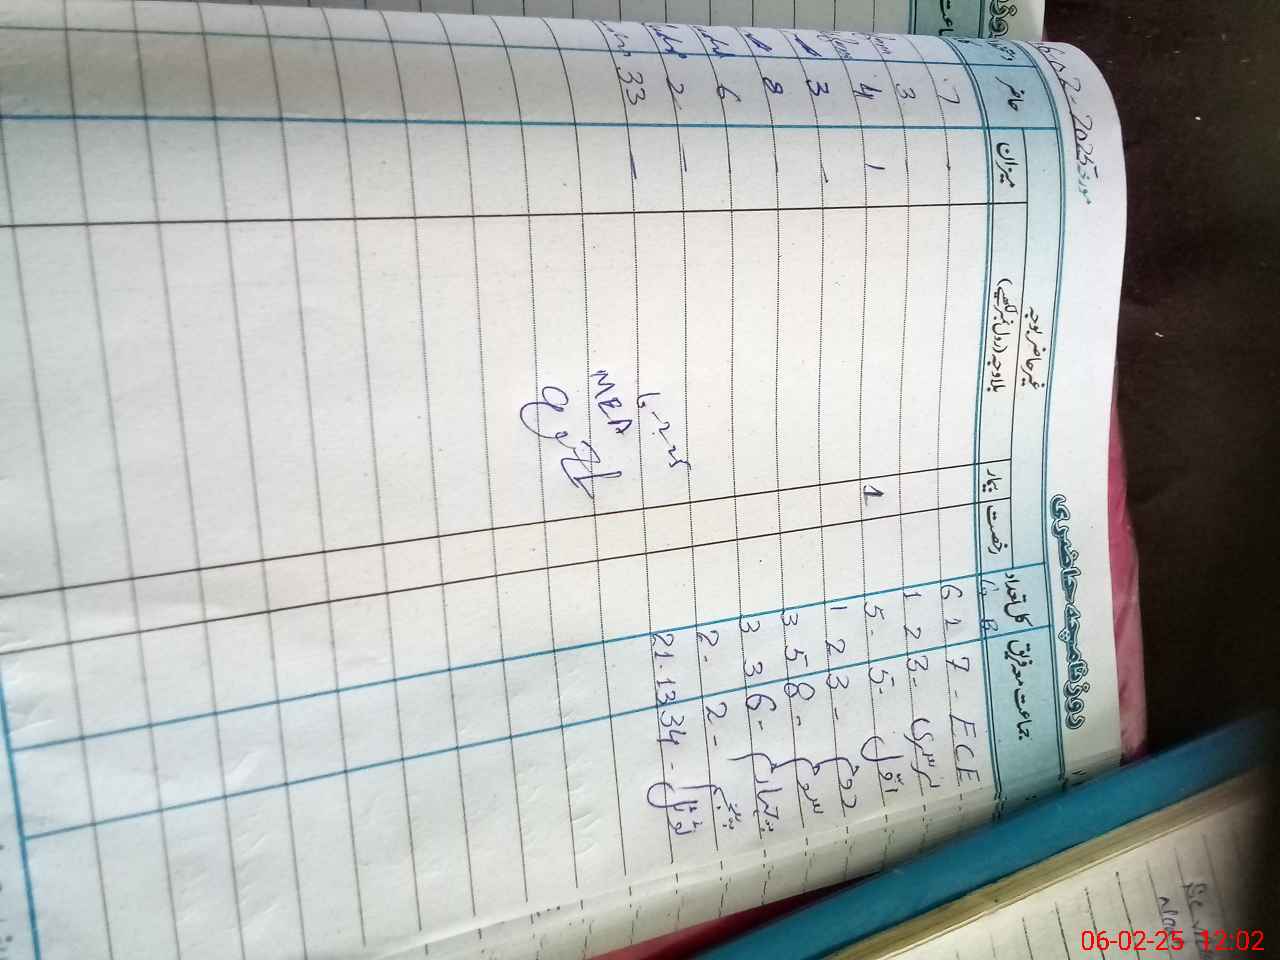 روزنامچہ حاضری
مورخہ 6-02-2025
جماعت معہ فریق کل تعداد رخصت بیمار غیر حاضر بوجہ بلاوجہ (رول نمبر لکھیے) میزان حاضر
G B
ECE - 7 1 6 - 7
نرسری - 3 2 1 3
اول 5 - 5 1 1 4
دوم - 3 2 1 - 3
سوم - 8 5 3 - 8
چہارم - 6 3 3 6
پنجم - 2 - 2 - 2
ٹوٹل - 34 13 . 21 - 33
6-2-25
MEA
06-02-25 12:02